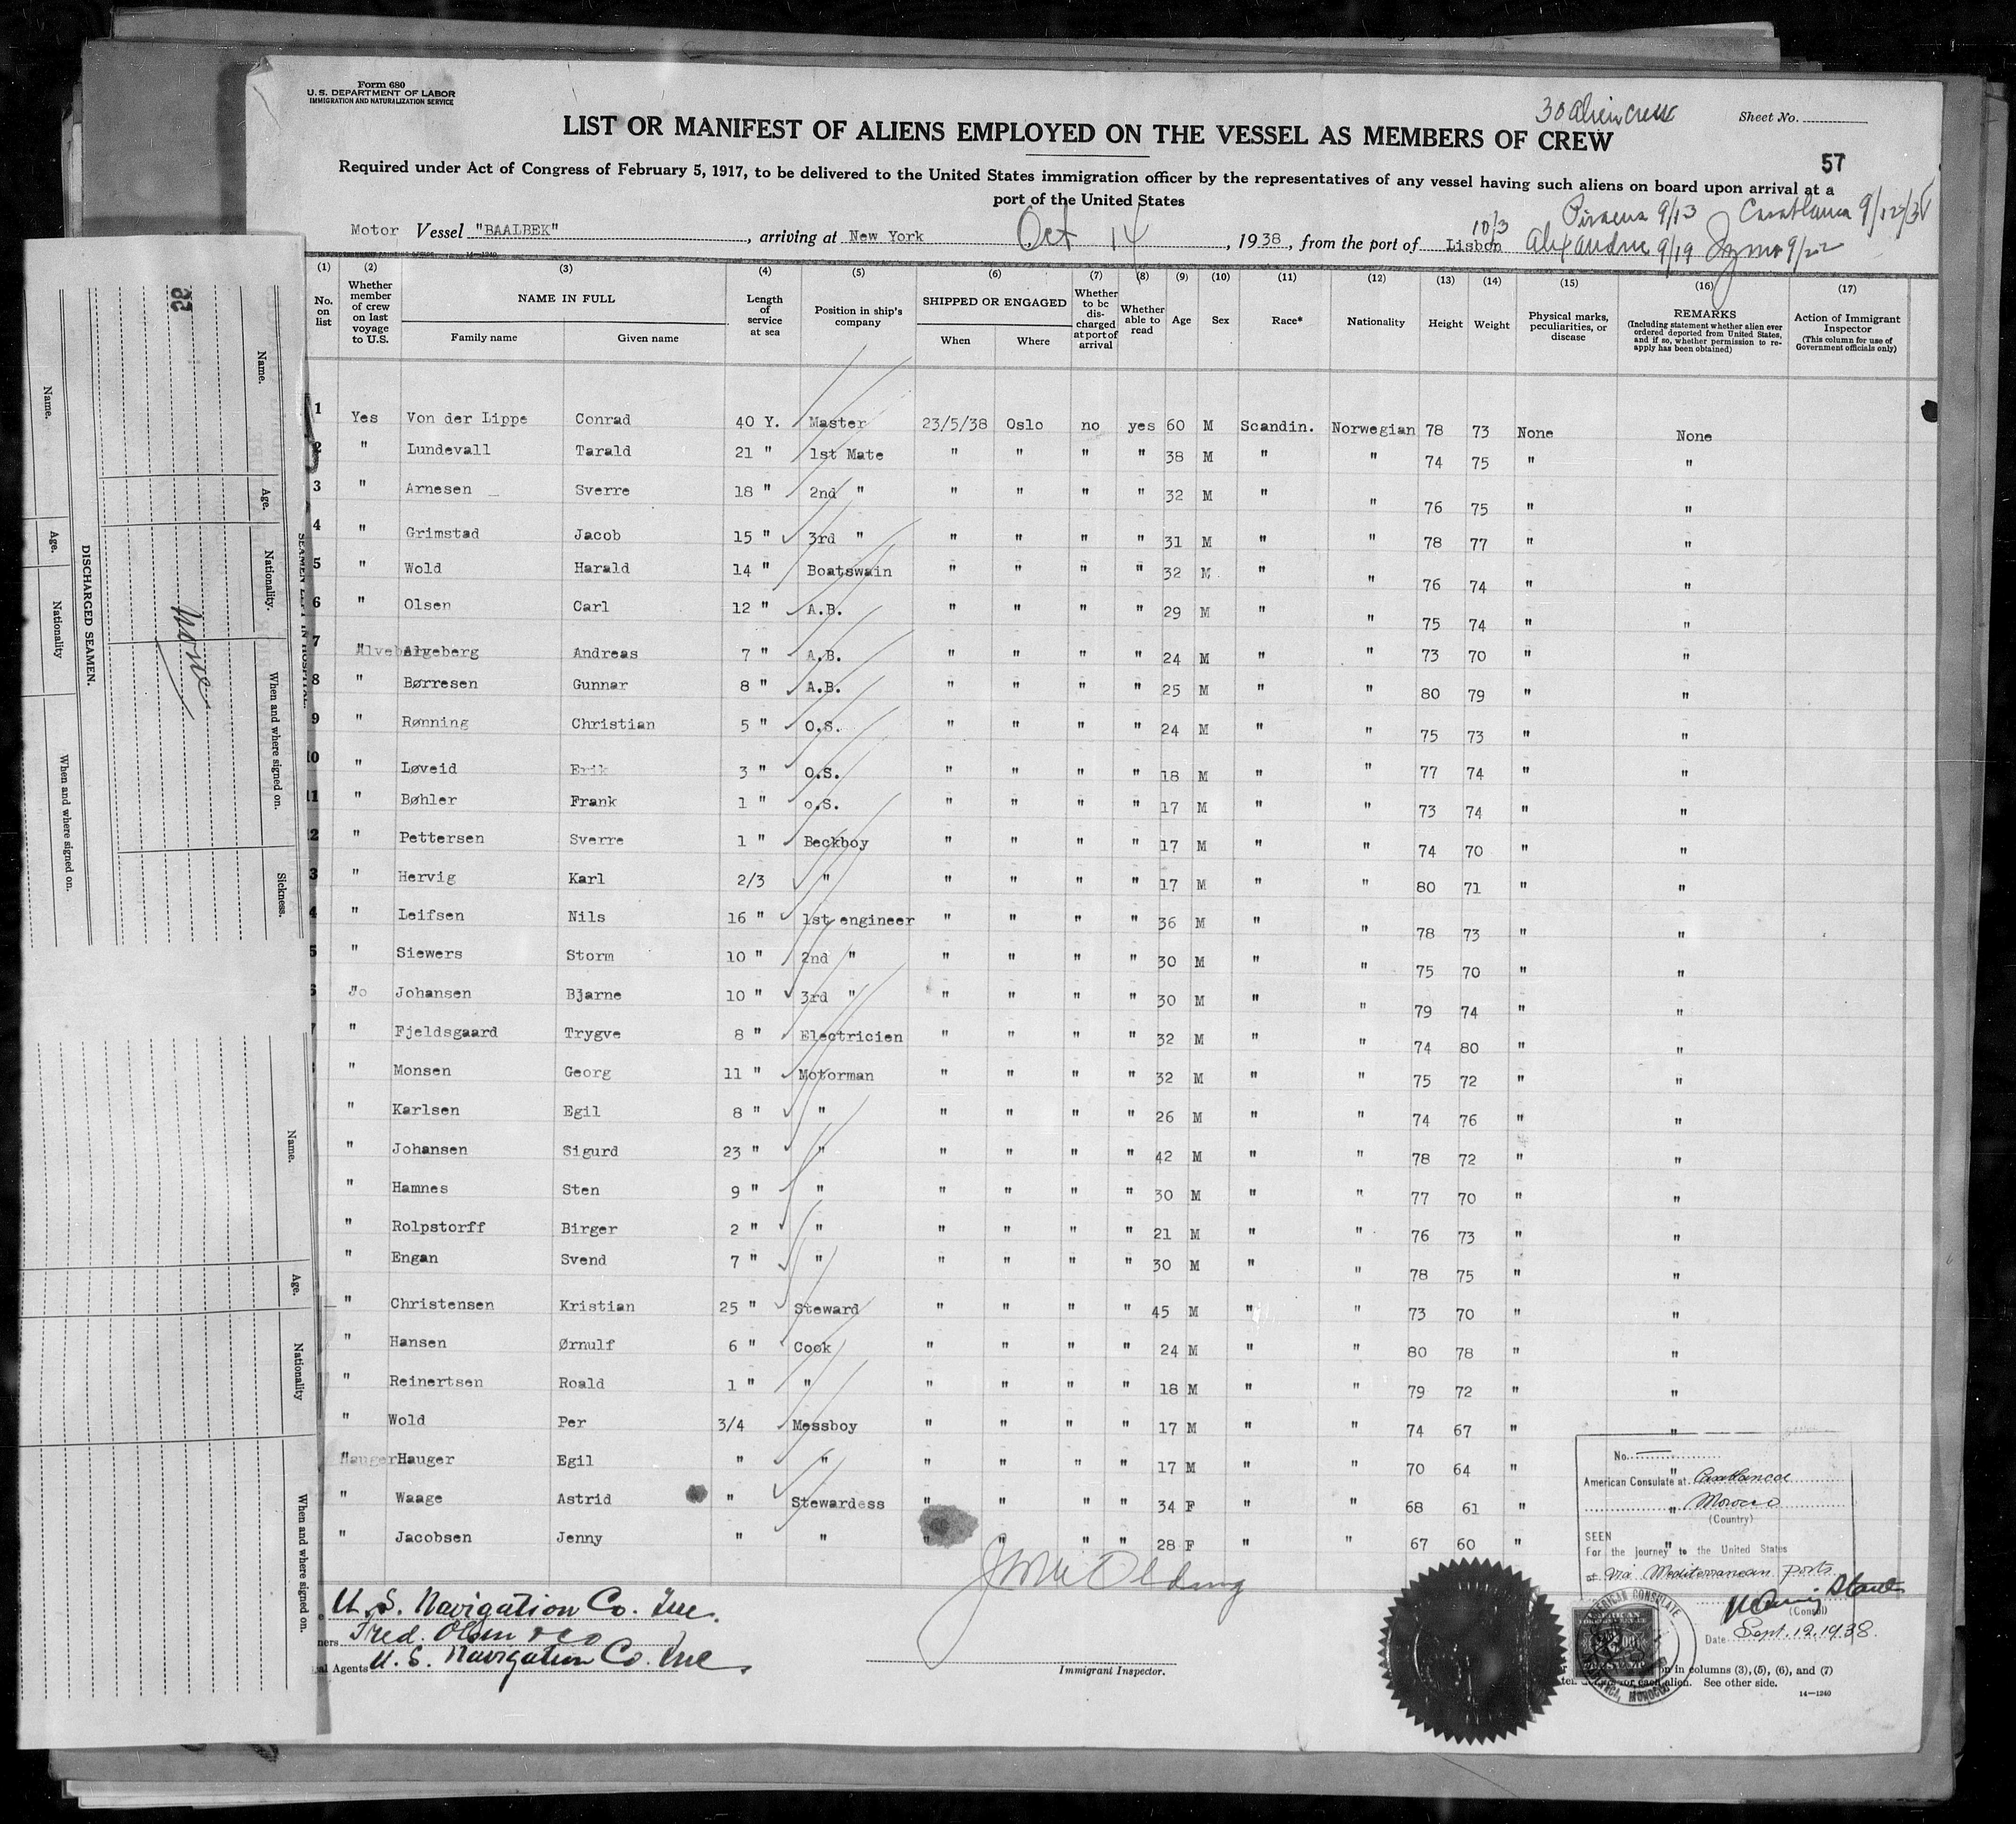 Form 680
U.S. DEPARTMENT OF LABOR
IMMIGRATION AND NATURALIZATION SERVICE
30 alien crew
Sheet No.
LIST OR MANIFEST OF ALIENS EMPLOYED ON THE VESSEL AS MEMBERS OF CREW
57
Required under Act of Congress of February 5, 1917, to be delivered to the United States immigration officer by the representatives of any vessel having such aliens on board upon arrival at a
port of the United States
Piraeus 9/13 Casablanca
Motor Vessel "BAALBEK", arriving at New York Oct 14, 1938, from the port of Lisbon 10/3 Alexandria 9/19
(1) (2) (3) (4) (5) (6) (7) (8) (9) (10) (11) (12) (13) (14) (15) (16) (17)
No. on list
Whether member of crew on last voyage to U.S.
NAME IN FULL
Family name Given name
Length of service at sea
Position in ship's company
SHIPPED OR ENGAGED
When Where
Whether to be discharged at port of arrival
Whether able to read
Age Sex Race* Nationality Height Weight
Physical marks, peculiarities, or disease
REMARKS
(Including statement whether alien ever ordered deported from United States, and if so, whether permission to reapply has been obtained)
Action of Immigrant Inspector
(This column for use of Government officials only)
1 Yes Von der Lippe Conrad 40 Y. Master 23/5/38 Oslo no yes 60 M Scandin. Norwegian 78 73 None None
2 " Lundevall Tarald 21 " 1st Mate " " " " 38 M " " 74 75 " "
3 " Arnesen Sverre 18 " 2nd " " " " " 32 M " " 76 75 " "
4 " Grimstad Jacob 15 " 3rd " " " " " 31 M " " 78 77 " "
5 " Wold Harald 14 " Boatswain " " " " 32 M " " 76 74 " "
6 " Olsen Carl 12 " A.B. " " " " 29 M " " 75 74 " "
7 " Alveberg Andreas 7 " A.B. " " " " 24 M " " 73 70 " "
8 " Børresen Gunnar 8 " A.B. " " " " 25 M " " 80 79 " "
9 " Rønning Christian 5 " O.S. " " " " 24 M " " 75 73 " "
10 " Løveid Erik 3 " O.S. " " " " 18 M " " 77 74 " "
11 " Bøhler Frank 1 " O.S. " " " " 17 M " " 73 74 " "
2 " Pettersen Sverre 1 " Beckboy " " " " 17 M " " 74 70 " "
3 " Hervig Karl 2/3 " " " " " 17 M " " 80 71 " "
4 " Leifsen Nils 16 " 1st engineer " " " " 36 M " " 78 73 " "
5 " Siewers Storm 10 " 2nd " " " " " 30 M " " 75 70 " "
" Johansen Bjarne 10 " 3rd " " " " " 30 M " " 79 74 " "
" Fjeldsgaard Trygve 8 " Electricien " " " " 32 M " " 74 80 " "
" Monsen Georg 11 " Motorman " " " " 32 M " " 75 72 " "
" Karlsen Egil 8 " " " " " " 26 M " " 74 76 " "
" Johansen Sigurd 23 " " " " " " 42 M " " 78 72 " "
" Hamnes Sten 9 " " " " " " 30 M " " 77 70 " "
" Rolpstorff Birger 2 " " " " " " 21 M " " 76 73 " "
" Engan Svend 7 " " " " " " 30 M " " 78 75 " "
" Christensen Kristian 25 " Steward " " " " 45 M " " 73 70 " "
" Hansen Ørnulf 6 " Cook " " " " 24 M " " 80 78 " "
" Reinertsen Roald 1 " " " " " " 18 M " " 79 72 " "
" Wold Per 3/4 Messboy " " " " 17 M " " 74 67 " "
" Hauger Egil " " " " " " 17 M " " 70 64 " "
" Waage Astrid " Stewardess " " " " 34 F " " 68 61 " "
" Jacobsen Jenny " " " " " " 28 F " " 67 60 " "
No.
American Consulate at Casablanca
Morocco
(Country)
SEEN
For the journey to the United States
via Mediterranean ports
(Consul)
Date Sept. 12, 1938.
AMERICAN CONSULATE
CASABLANCA, MOROCCO
U.S. Navigation Co. Inc.
Fred. Olsen & Co
Agents U.S. Navigation Co. Inc
Immigrant Inspector.
in columns (3), (5), (6), and (7)
for each alien. See other side.
14—1240
28
DISCHARGED SEAMEN.
Name. Age. Nationality When and where signed on.
SEAMEN LEFT IN HOSPITAL.
Name. Age. Nationality. When and where signed on. Sickness.
None
Name. Age. Nationality When and where signed on.